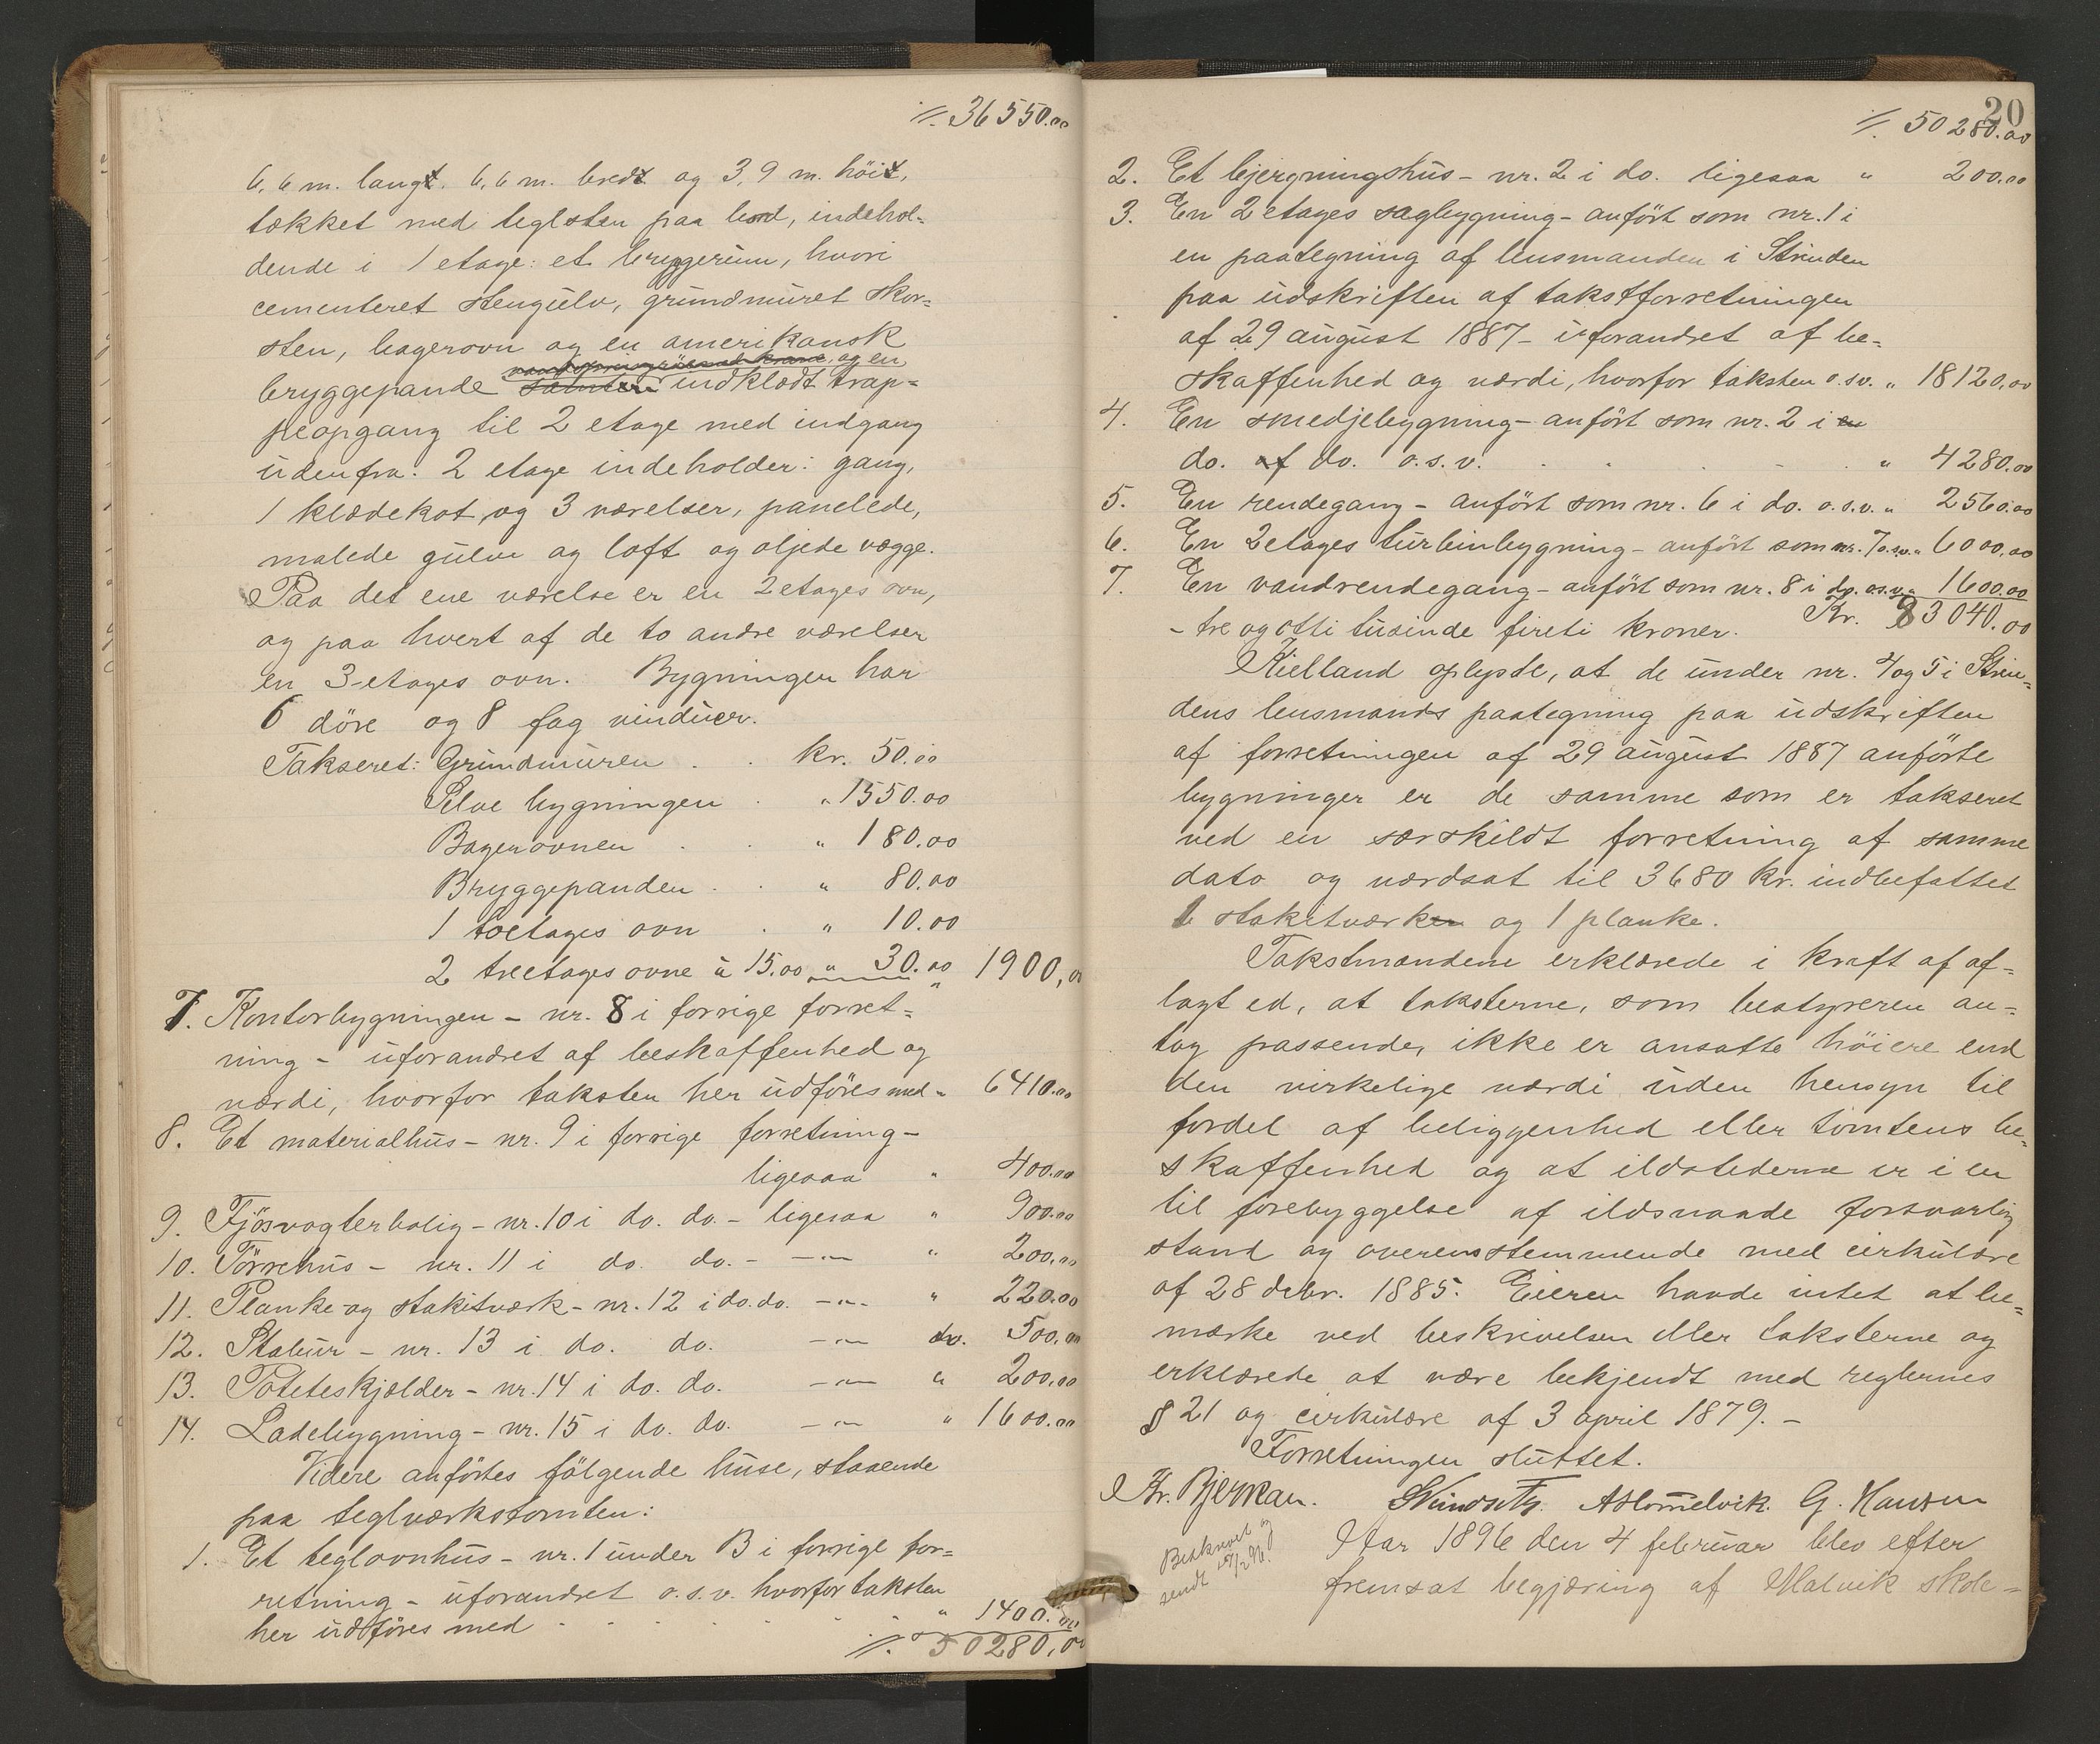 ÷ 36550.00
6,6 m. langt. 6,6 m. bredt og 3,9 m. höit,
tækket med teglsten paa bord, indehol-
dende i 1 etage: et bryggerum, hvori
cementeret stengulv, grundmuret skor-
sten, bagerovn og en amerikansk
og en
bryggepande samt en indklædt trap-
peopgang til 2 etage med indgang
udenfra. 2 etage indeholder: gang,
1 klædekot og 3 værelser, panelede,
malede gulve og loft og oljede vægge.
Paa det ene værelse er en 2 etages ovn,
og paa hvert af de to andre værelser
en 3-etages ovn. Bygningen har
6 döre og 8 fag vinduer.
Takseret: Grundmuren . . kr. 50.00
Selve bygningen . " 1550.00
Bagerovnen . . " 180.00
Bryggepanden . . " 80.00
1 toetages ovn . " 10.00
2 treetages ovne à 15.00 " 30.00 " 1900,00
7. Kontorbygningen - nr. 8 i forrige forret-
ning - uforandret af beskaffenhed og
værdi, hvorfor taksten her udföres med " 6410.00
8. Et materialhus - nr. 9 i forrige forretning -
ligesaa " 400.00
9. Fjösvogterbolig - nr. 10 i do. do. - ligesaa " 900.00
10. Törrehus - nr. 11 i do. do. - - " - " 200.00
11. Planke- og stakitværk - nr. 12 i do. do. - " - " 220.00
12. Stabur - nr. 13 i do. do. - " - do. 500.00
13. Poteteskjælder - nr. 14 i do. do. - " - " 200.00
14. Ladebygning - nr. 15 i do. do. - " - " 1600.00
Videre anförtes fölgende huse, staaende
paa teglværkstomten:
1. Et teglovnhus - nr. 1 under B i forrige for-
retning - uforandret o.s.v. hvorfor taksten
her udföres med . . . . . " 1400.00
÷ 50280,00
20
÷ 50280.00
2. Et bjergningshus - nr. 2 i do. ligesaa " 200.00
3. En 2 etages sagbygning - anfört som nr. 1 i
en paategning af lensmanden i Strinden
paa udskriften af takstforretningen
af 29 august 1887 - uforandret af be-
skaffenhed og værdi, hvorfor taksten o.sv. " 18120,00
4. En smedjebygning - anfört som nr. 2 i en
do. af do. o.s.v. . . . . " 4280.00
5. En rendegang - anfört som nr. 6 i do. o.s.v. " 2560.00
6. En 2 etages turbinbygning - anfört som nr. 7 o.s.v. " 6000,00
7. En vandrendegang - anfört som nr. 8 i do. o.s.v. " 1600.00
Kr. 83040.00
- tre og otti tusinde fireti kroner.
Kielland oplyste, at de under nr. 4 og 5 i Strin-
dens lensmands paategning paa udskriften
af forretningen af 29 august 1887 anförte
bygninger er de samme som er takseret
ved en særskildt forretning af samme
dato og værdsat til 3680 kr. indbefattet
1 stakitværk og 1 planke.
Takstmændene erklærede i kraft af af-
lagt ed, at taksterne, som bestyreren an-
tog passende, ikke er ansatte höiere end
den virkelige værdi uden hensyn til
fordel af beliggenhed eller tomtens be-
skaffenhed og at ildstederne er i en
til forebyggelse af ildsvaade forsvarlig
stand og overensstemmende med cirkulære
af 28 debr. 1885. Eieren havde intet at be-
mærke ved beskrivelsen eller taksterne og
erklærede at være bekjendt med reglernes
§ 21 og cirkulære af 3 april 1879. -
Forretningen sluttet.
Kr. Bjerkan. A Homelvik. G. Hansen
Beskrevet og
sendt /2 96.
Aar 1896 den 4 februar blev efter
fremsat begjæring af Malvik skole-